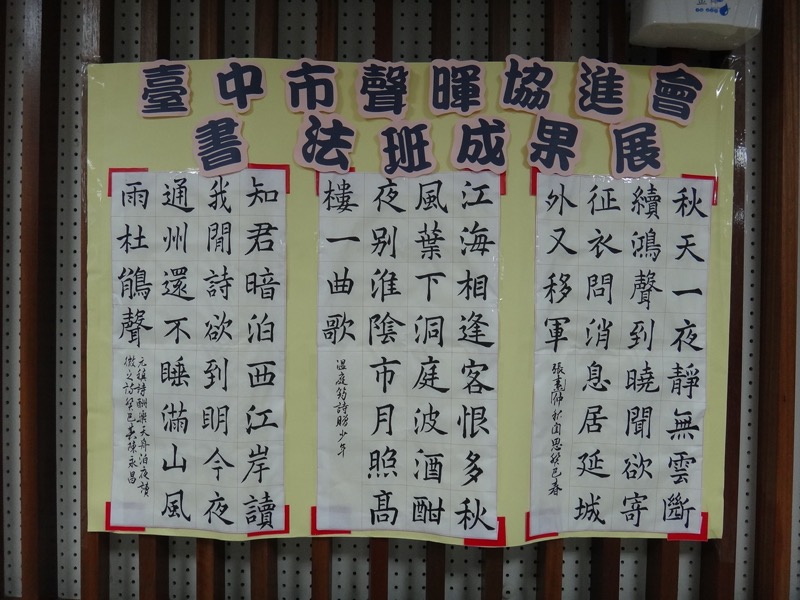 臺中市聲暉協進會
書法班成果展
秋天一夜靜無雲斷
續鴻聲到曉聞欲寄
征衣問消息居延城
外又移軍
張素仲秋閨思癸巳春
江海相逢客恨多秋
風葉下洞庭波酒酣
夜别淮陰市月照高
樓一曲歌
溫庭筠詩贈少年
知君暗泊西江岸讀
我閒詩欲到明今夜
通州還不睡滿山風
雨杜鵑聲
元稹詩酬樂天舟泊夜讀
微之詩癸巳春陳永昌